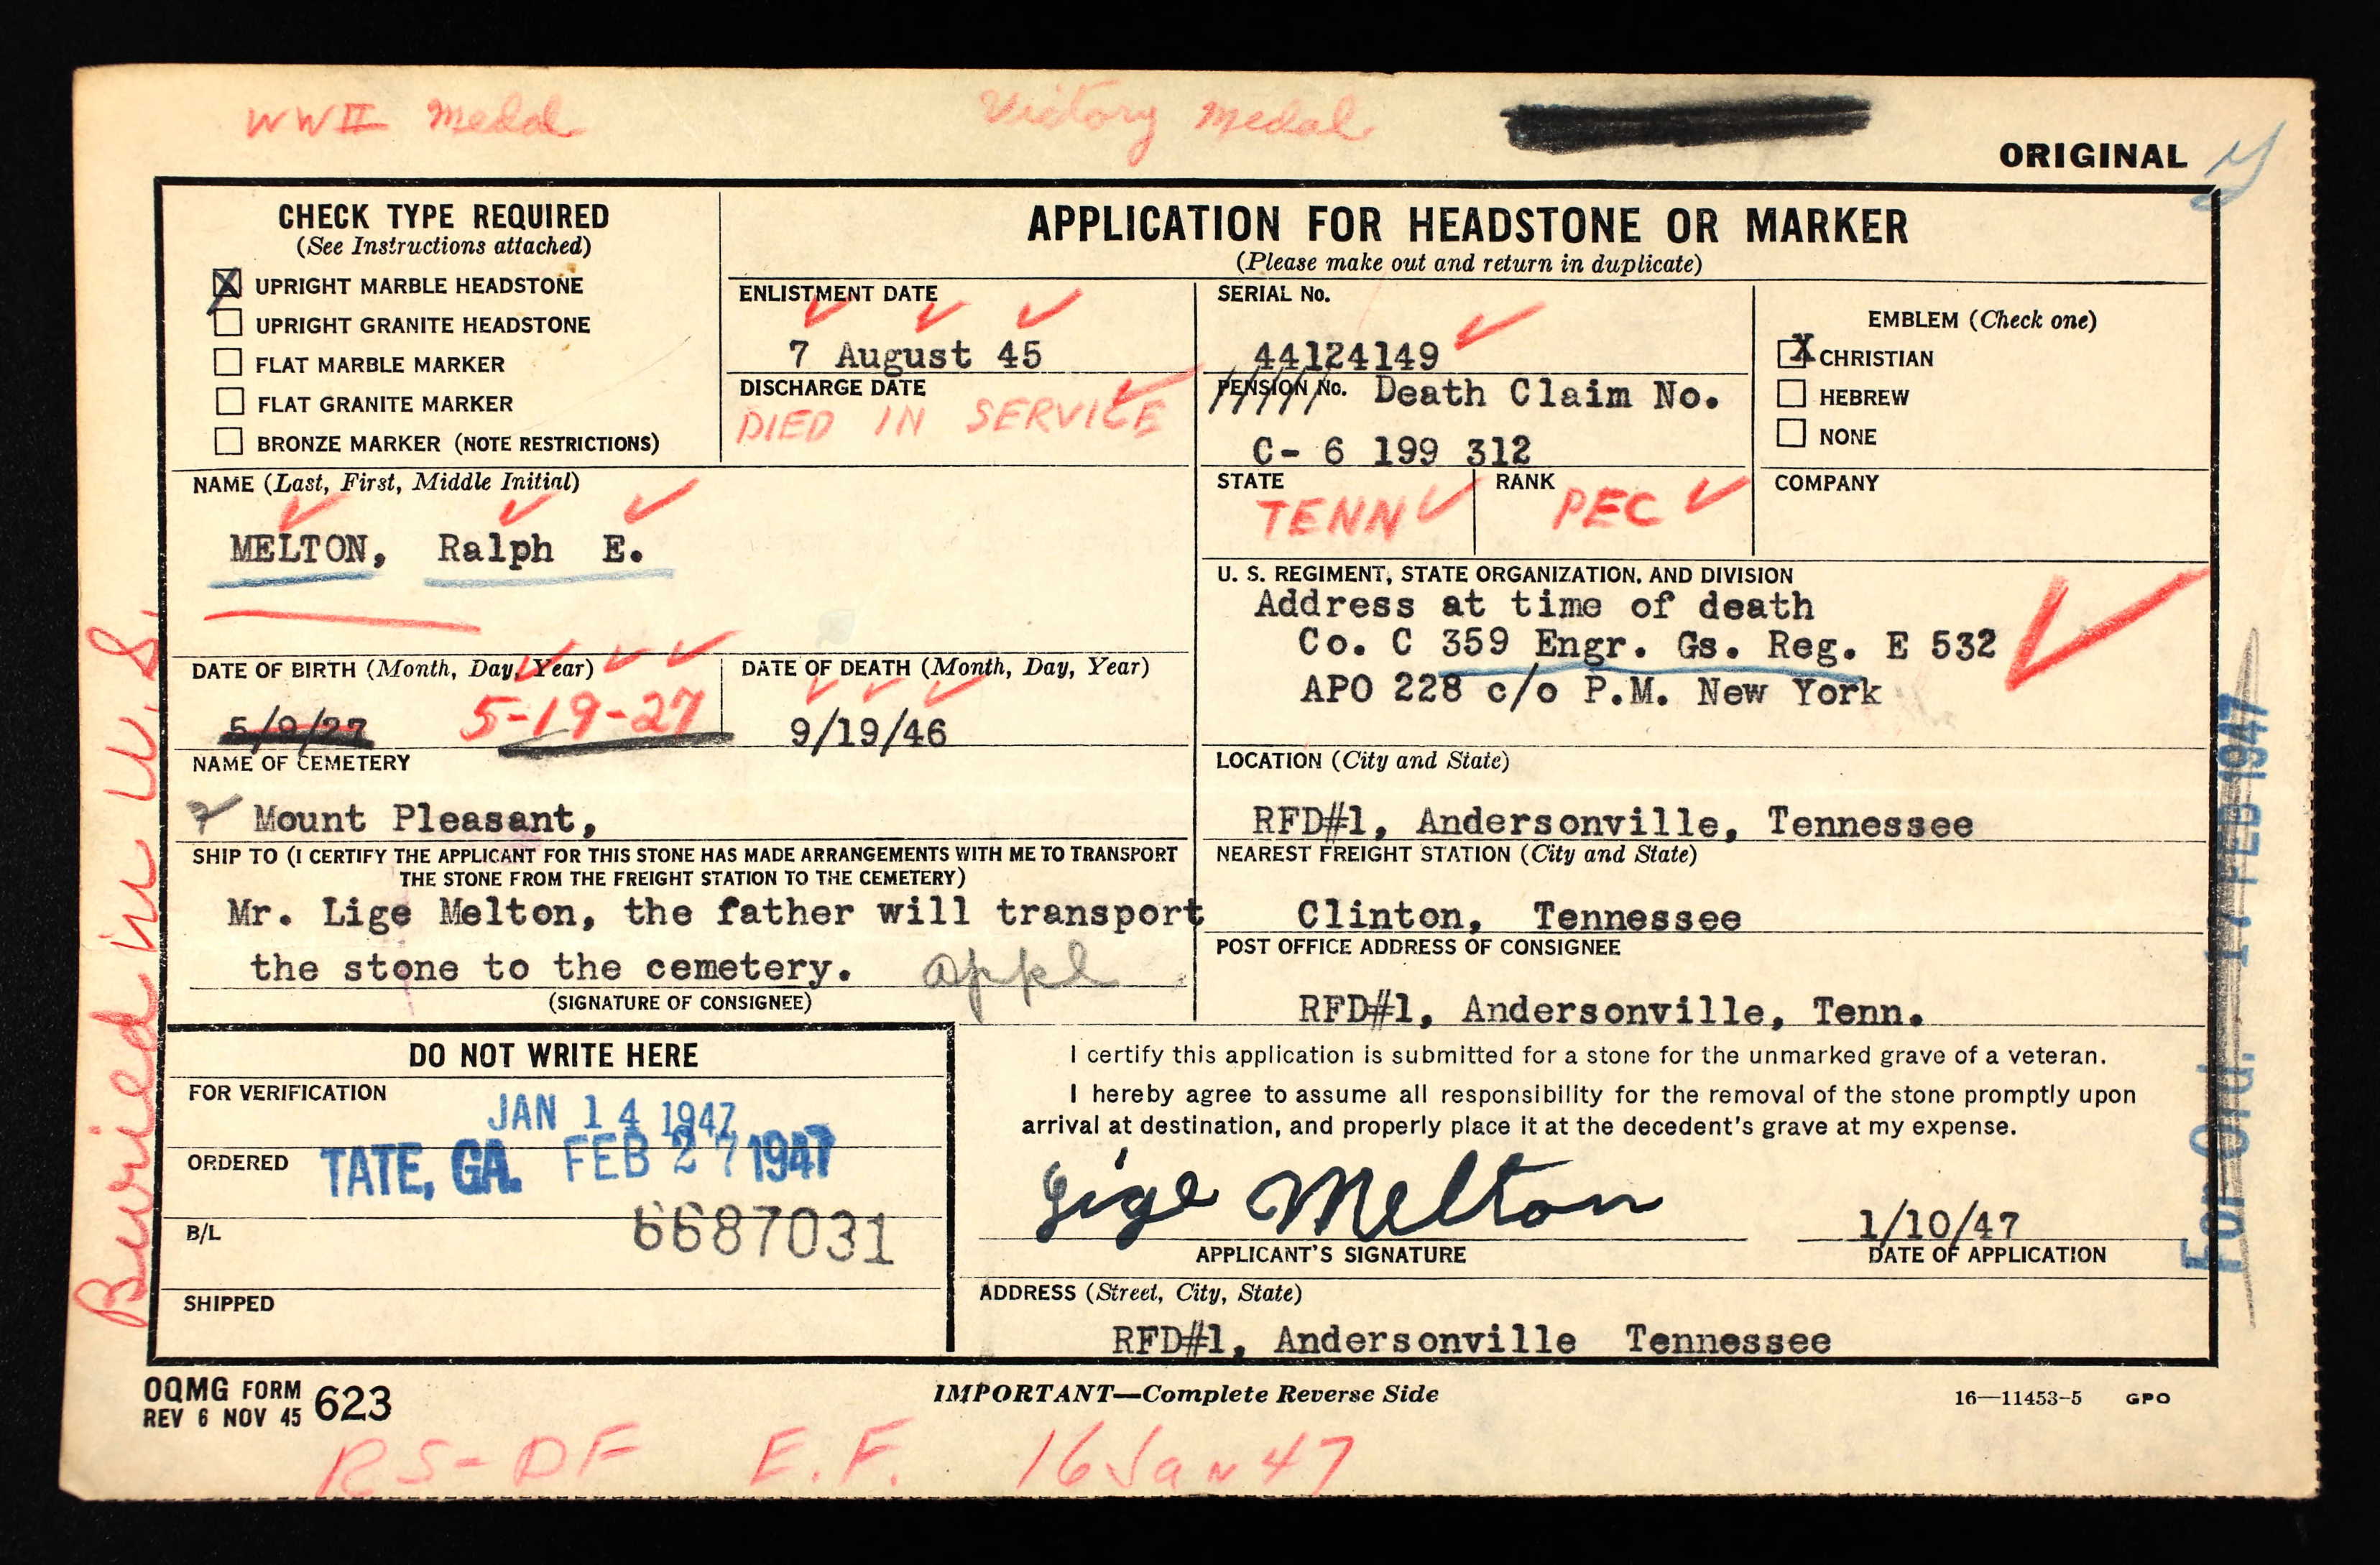 WWII Medal
Victory Medal
ORIGINAL
CHECK TYPE REQUIRED
(See Instructions attached)
X UPRIGHT MARBLE HEADSTONE
UPRIGHT GRANITE HEADSTONE
FLAT MARBLE MARKER
FLAT GRANITE MARKER
BRONZE MARKER (NOTE RESTRICTIONS)
APPLICATION FOR HEADSTONE OR MARKER
(Please make out and return in duplicate)
ENLISTMENT DATE
7 August 45
DISCHARGE DATE
DIED IN SERVICE
SERIAL No.
44124149
PENSION No. Death Claim No.
C- 6 199 312
EMBLEM (Check one)
X CHRISTIAN
HEBREW
NONE
NAME (Last, First, Middle Initial)
MELTON, Ralph E.
STATE
TENN
RANK
PFC
COMPANY
U. S. REGIMENT, STATE ORGANIZATION, AND DIVISION
Address at time of death
Co. C 359 Engr. Gs. Reg. E 532
APO 228 c/o P.M. New York
DATE OF BIRTH (Month, Day, Year)
5/9/27 5-19-27
DATE OF DEATH (Month, Day, Year)
9/19/46
NAME OF CEMETERY
Mount Pleasant,
LOCATION (City and State)
RFD#1, Andersonville, Tennessee
SHIP TO (I CERTIFY THE APPLICANT FOR THIS STONE HAS MADE ARRANGEMENTS WITH ME TO TRANSPORT
THE STONE FROM THE FREIGHT STATION TO THE CEMETERY)
Mr. Lige Melton, the father will transport
the stone to the cemetery. appl
(SIGNATURE OF CONSIGNEE)
NEAREST FREIGHT STATION (City and State)
Clinton, Tennessee
POST OFFICE ADDRESS OF CONSIGNEE
RFD#1, Andersonville, Tenn.
DO NOT WRITE HERE
FOR VERIFICATION
JAN 14 1947
ORDERED TATE, GA. FEB 27 1947
B/L 6687031
SHIPPED
I certify this application is submitted for a stone for the unmarked grave of a veteran.
I hereby agree to assume all responsibility for the removal of the stone promptly upon
arrival at destination, and properly place it at the decedent's grave at my expense.
Lige Melton
APPLICANT'S SIGNATURE
1/10/47
DATE OF APPLICATION
ADDRESS (Street, City, State)
RFD#1, Andersonville Tennessee
OQMG FORM 623
REV 6 NOV 45
IMPORTANT—Complete Reverse Side
16—11453-5 GPO
RS-DF E.F. 16 Jan 47
Buried in U.S.
For Ord. 17 FEB 1947